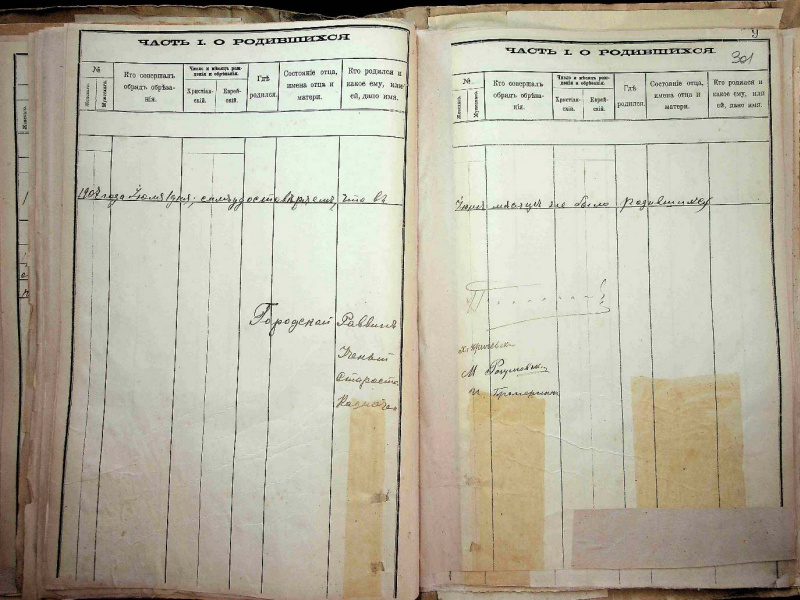 ЧАСТЬ I. О РОДИВШИХСЯ
№
Женскаго.
Мужескаго.
Кто совершалъ обрядъ обрѣзанія.
Число и мѣсяцъ рожденія и обрѣзанія.
Христіанскій.
Еврейскій.
Гдѣ родился.
Состояніе отца, имена отца и матери.
Кто родился и какое ему, или ей, дано имя.
1904 года Іюля 1 дня, симъ удостовѣряемъ, что въ
Городской Раввинъ
Ученый
Староста
Казначей
9
301
ЧАСТЬ I. О РОДИВШИХСЯ.
№
Женскаго.
Мужескаго.
Кто совершалъ обрядъ обрѣзанія.
Число и мѣсяцъ рожденія и обрѣзанія.
Христіанскій.
Еврейскій.
Гдѣ родился.
Состояніе отца, имена отца и матери.
Кто родился и какое ему, или ей, дано имя.
Іюнѣ мѣсяцѣ не было родившихся
М